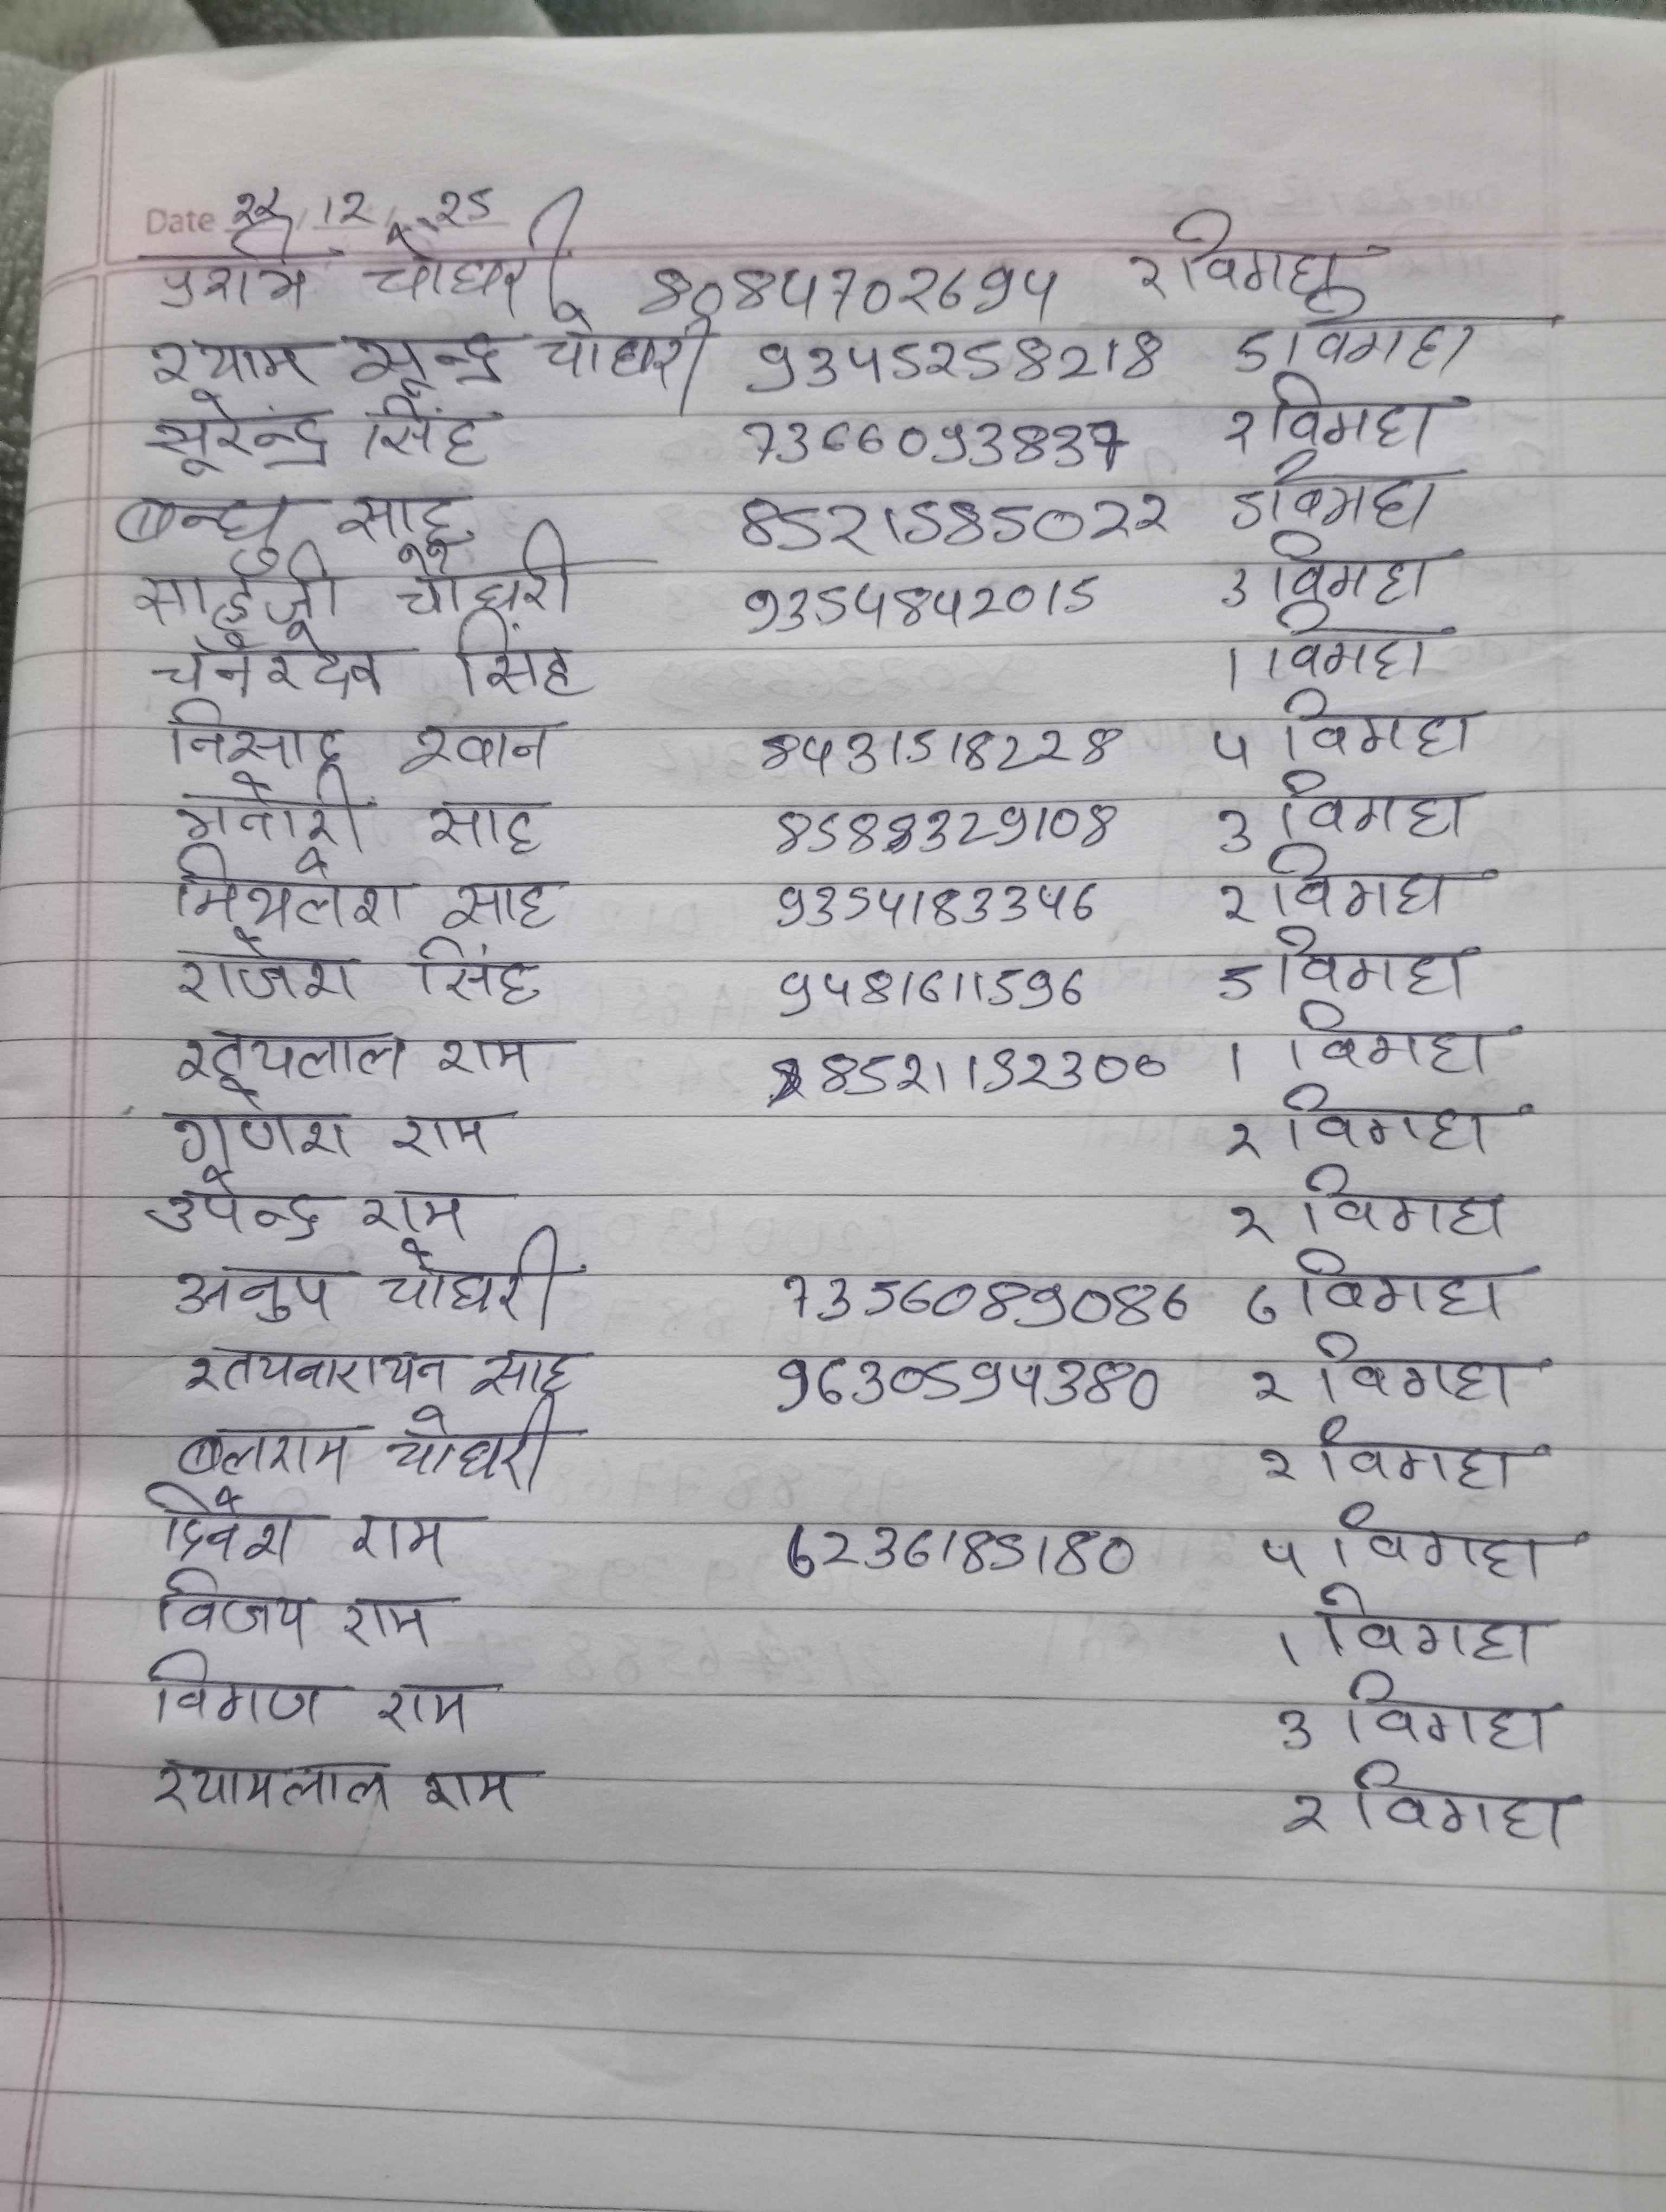 Date 22/12/25
पुराम चौधरी 80847702694 2 विगहा
श्याम सून्द्र चौधरी 9345258218 5 विगहा
सूरेन्द्र सिंह 7366093837 2 विगहा
बन्धु साह 8521585022 5 विगहा
साहेजी चौधरी 9354842015 3 विगहा
सिंह 1 विगहा
निसाद खान 8431518228 4 विगहा
मनोरी साह 8588329108 3 विगहा
मिथलेश साह 9354183346 2 विगहा
राजेश सिंह 9481611596 5 विगहा
राम 8521132300 1 विगहा
गणेश राम 2 विगहा
उपेन्द्र राम 2 विगहा
अनुप चौधरी 7356089086 6 विगहा
स्तयनारायन साह 9630594380 2 विगहा
बलराम चौधरी 2 विगहा
दिनेश राम 6236185180 4 विगहा
विजय राम 1 विगहा
विगण राम 3 विगहा
श्यामलाल राम 2 विगहा